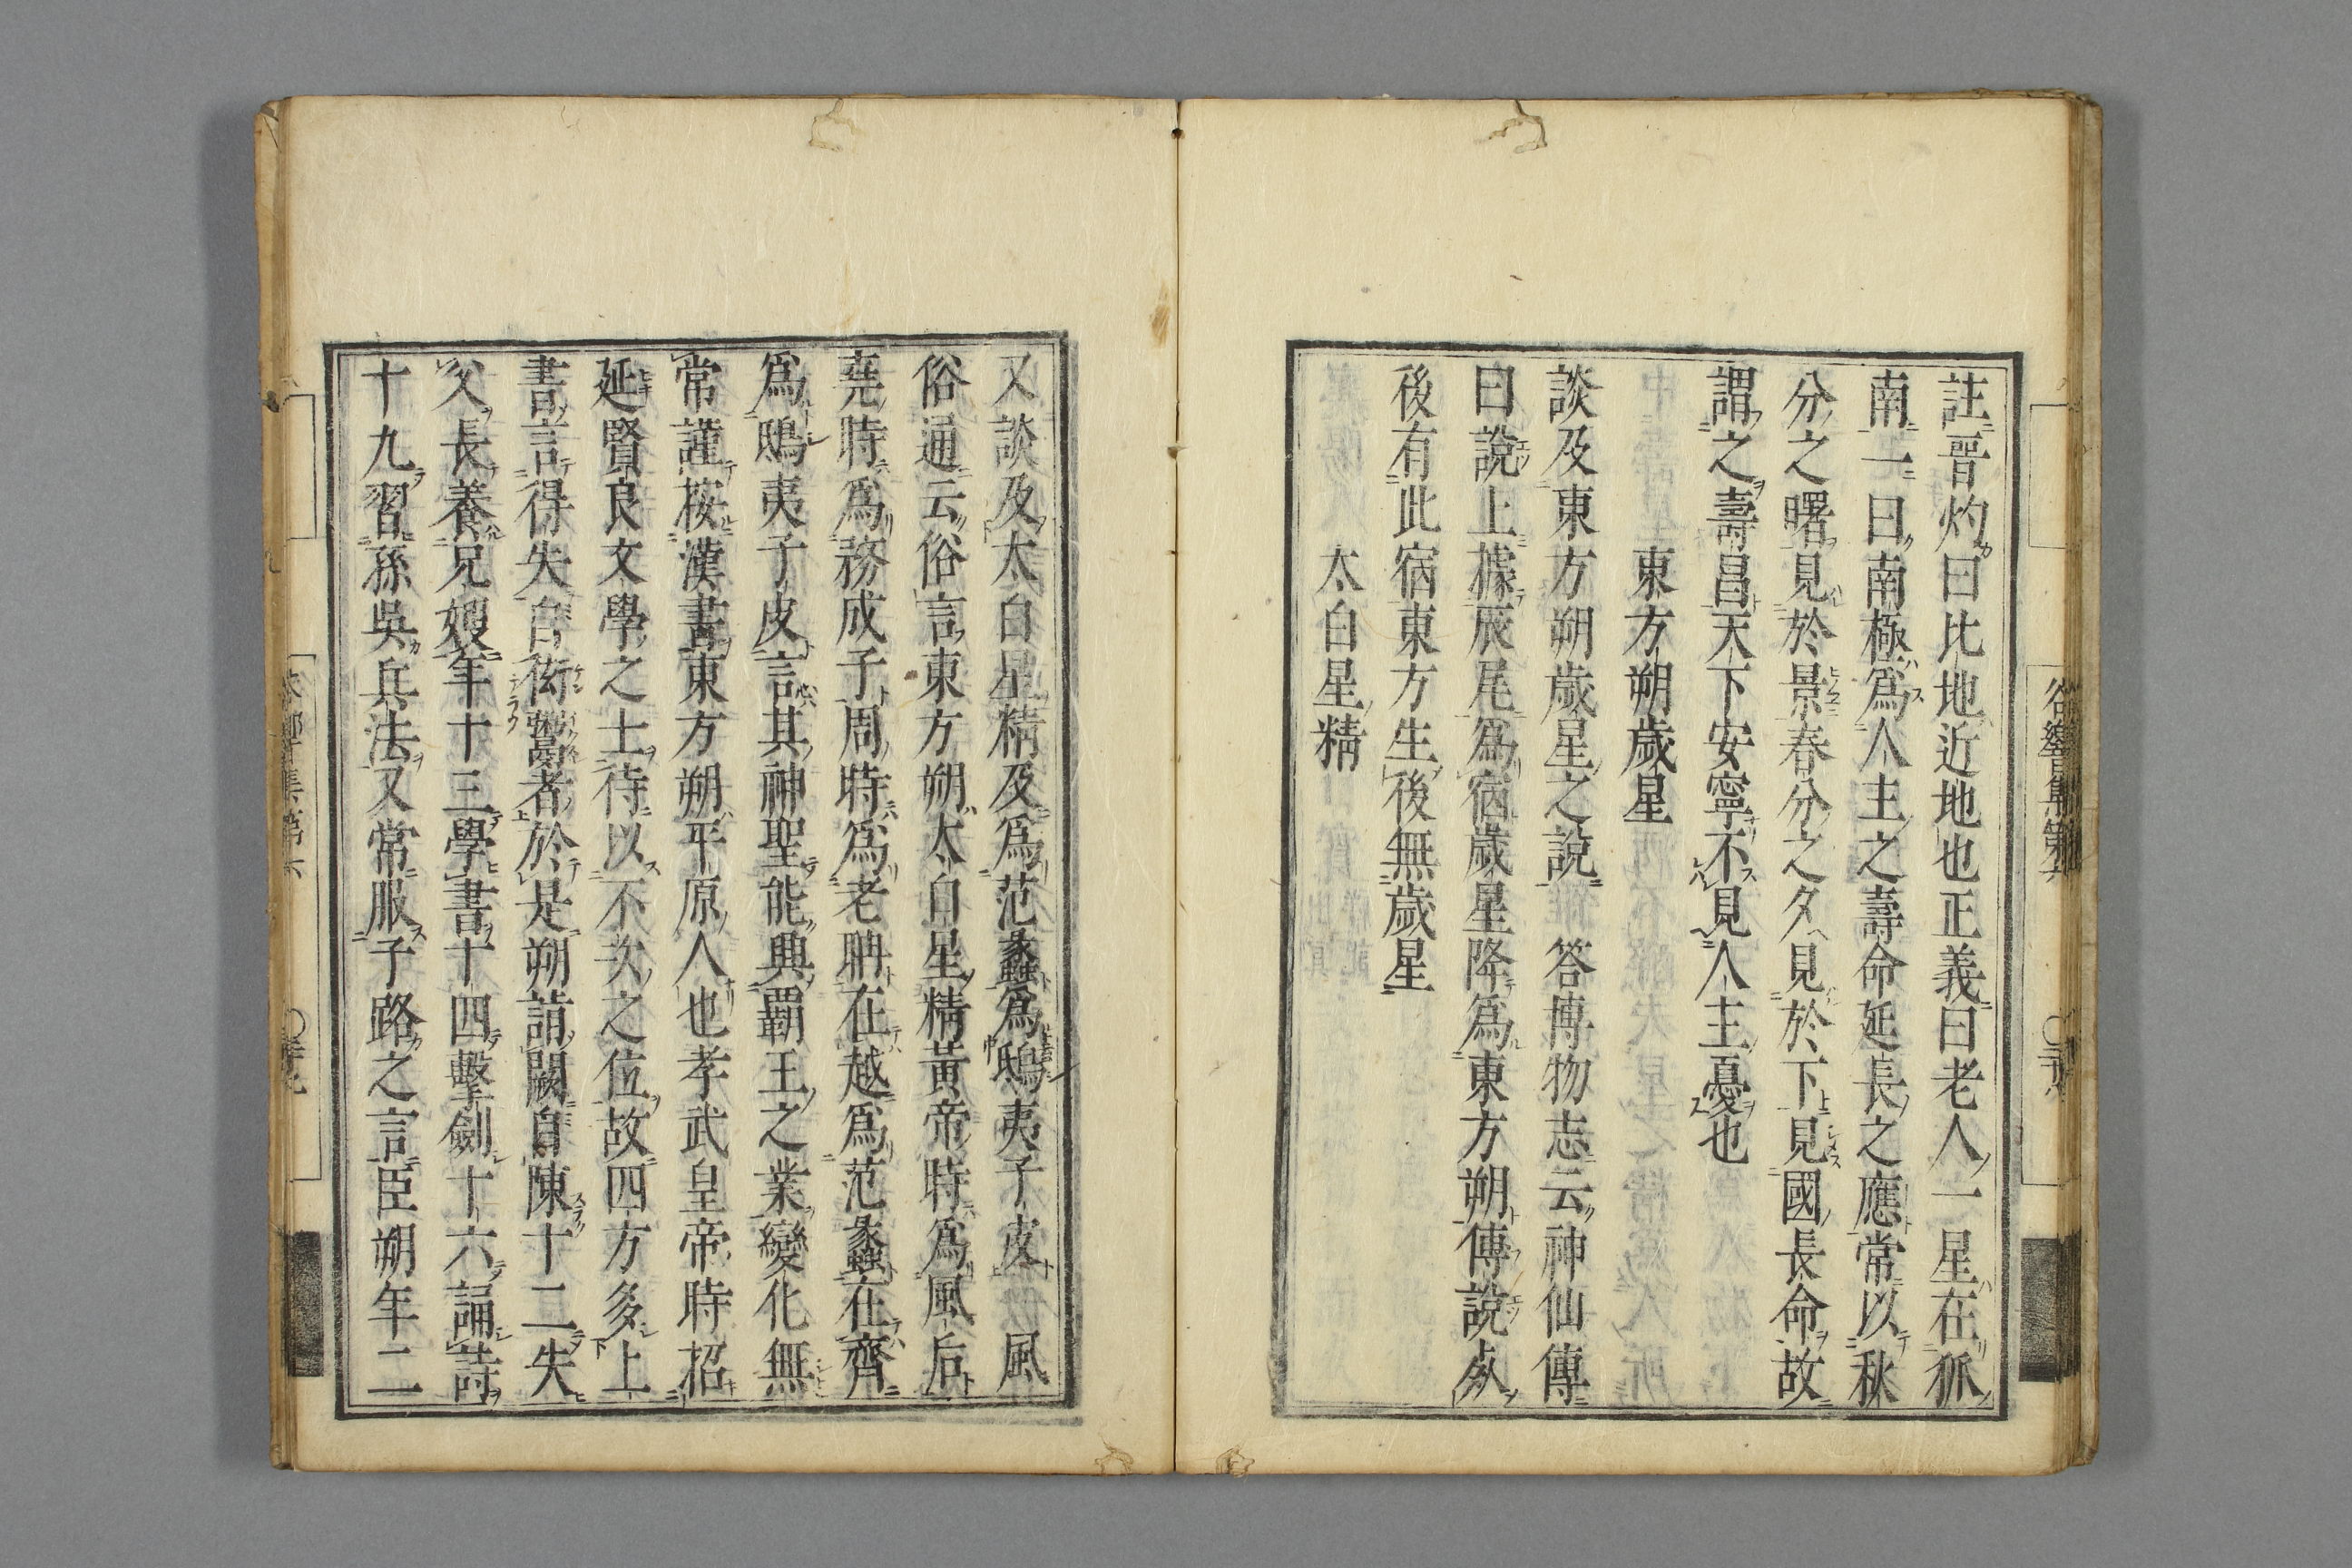 註晉灼曰比地近地也正義曰老人一星在狐
南一曰南極爲人主之壽命延長之應常以秋
分之曙見於景春分之夕見於下見國長命故
謂之壽昌天下安寧不見人主憂也
東方朔歲星
談及東方朔歲星之說 答博物志云神仙傳
曰說上據辰尾爲宿歲星降爲東方朔傳說死
後有此宿東方生後無歲星
太白星精
又談及太白星精及爲范蠡爲鴟夷子皮 風
俗通云俗言東方朔太白星精黃帝時爲風后
堯時爲務成子周時爲老聃在越爲范蠡在齊
爲鴟夷子皮言其神聖能興覇王之業變化無
常謹按漢書東方朔平原人也孝武皇帝時招
延賢良文學之士待以不次之位故四方多上
書言得失自衒鬻者於是朔詣闕自陳十二失
父長養兄嫂年十三學書十四擊劍十六誦詩
十九習孫吳兵法又常服子路之言臣朔年二